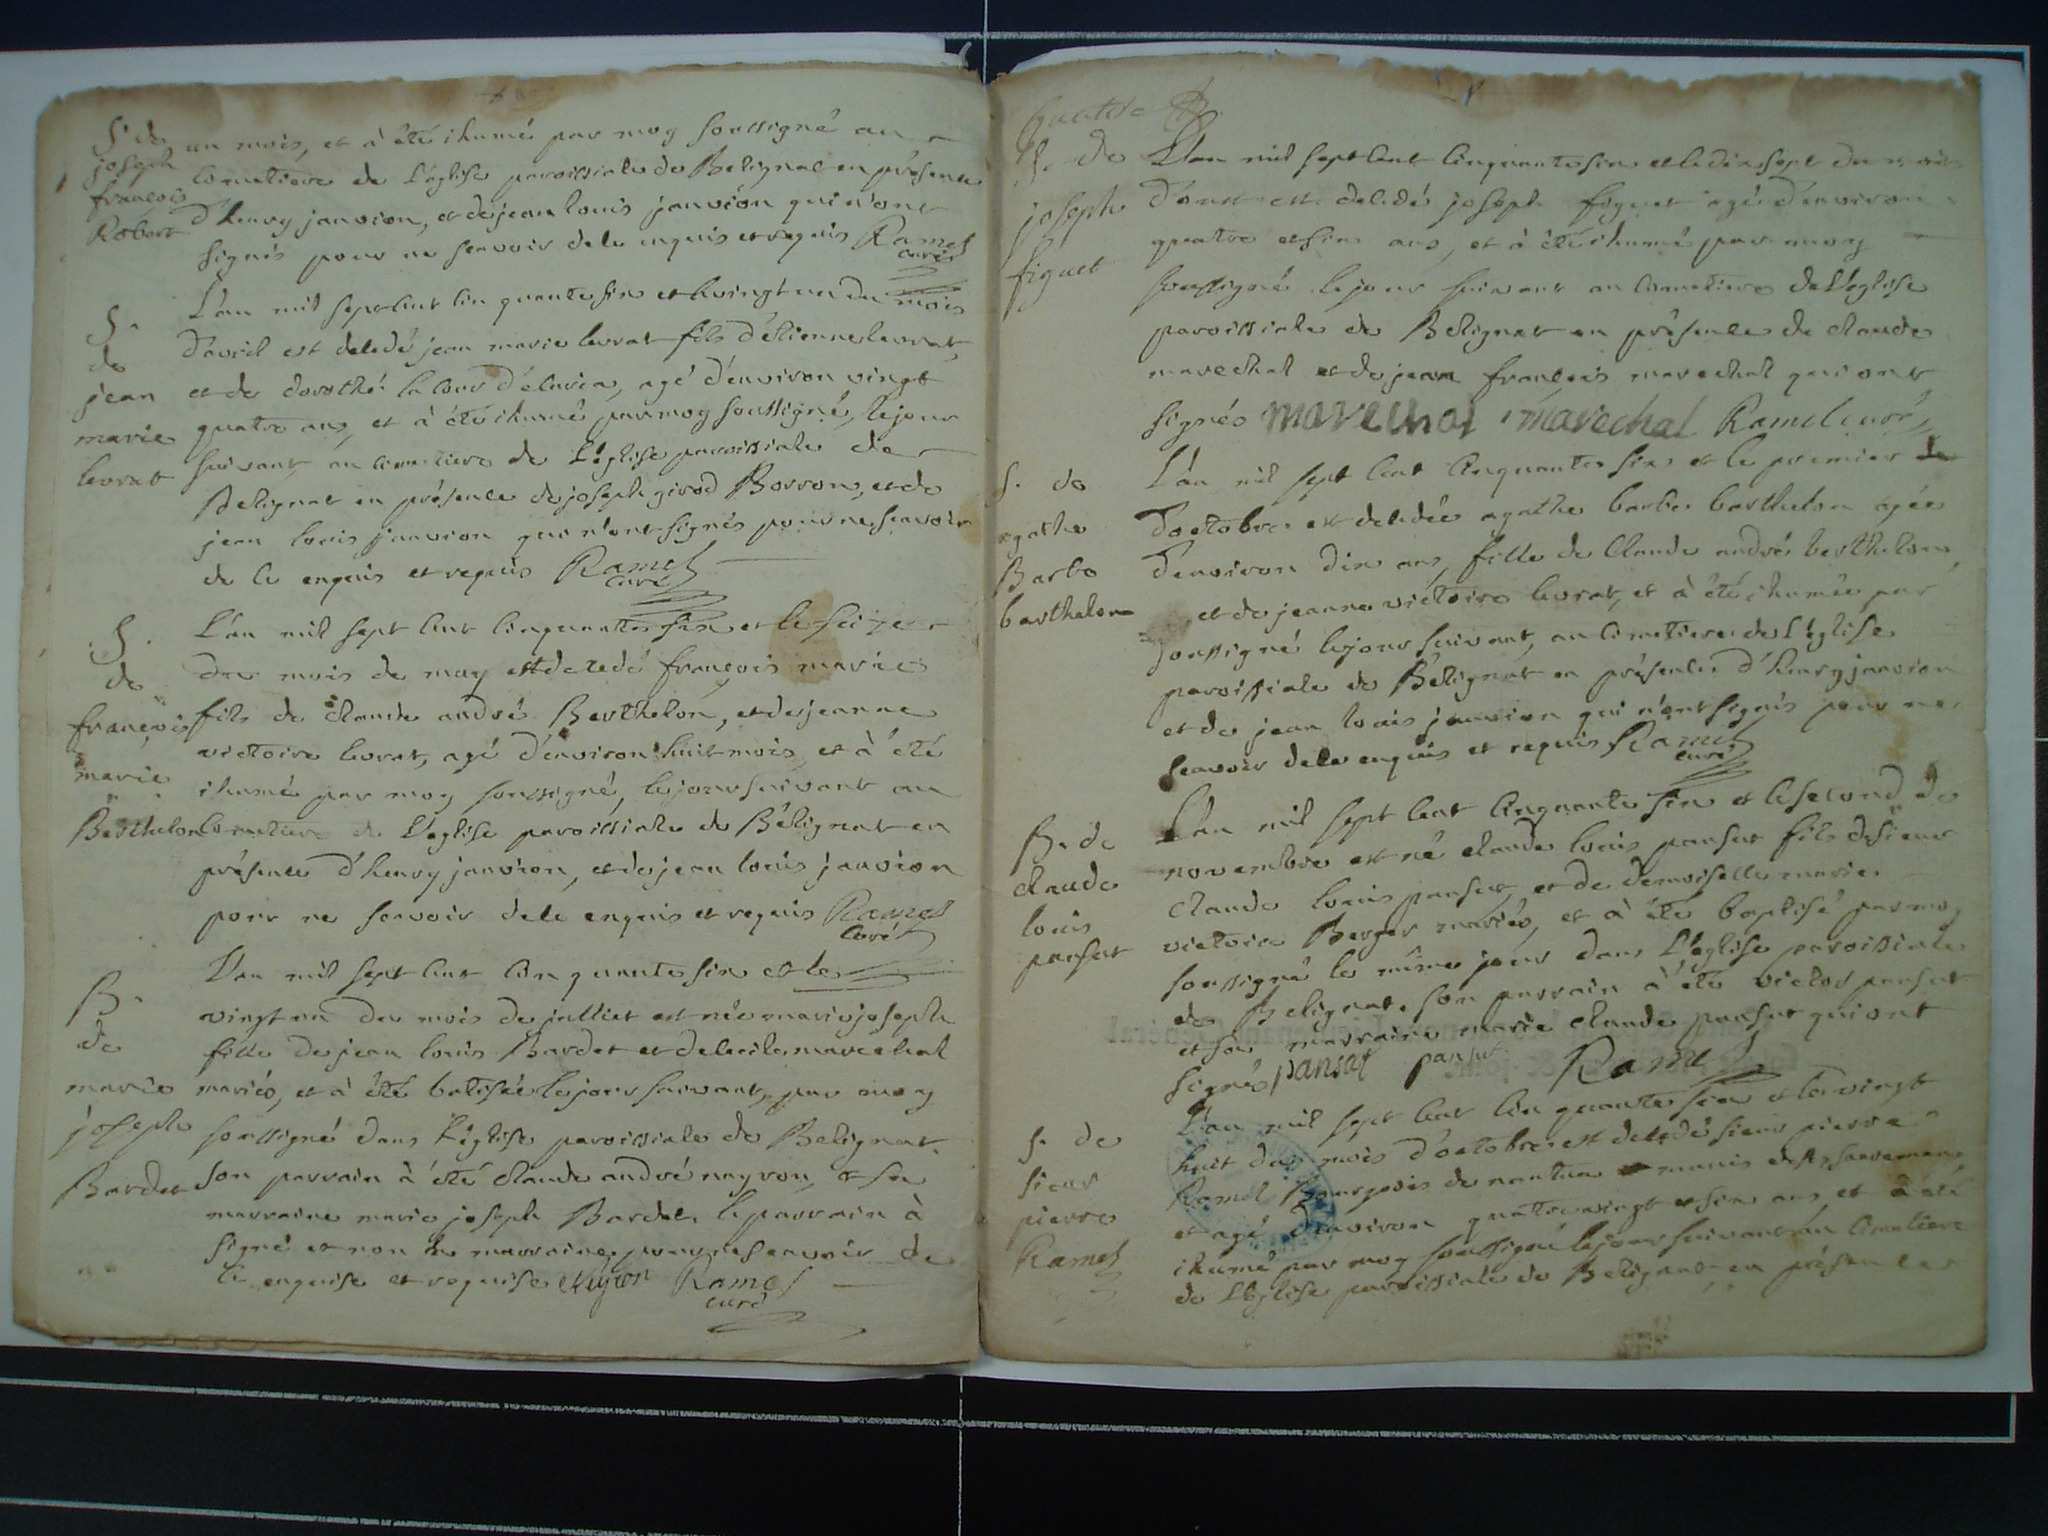 S. de
joseph
françois
Robert
un mois, et à été ihumé par moy soussigné au
cemetiere de L'église paroissiale de Belignat en présence
d'henry janvion, et de jean louis janvion qui n'ont
signés pour ne scavoir de le enquis et requis Ramel
curé
S.
de
jean
marie
levrat
L'an mil sept cent cinquante six et le vingt un du mois
d'avril est decedé jean marie levrat fils d'étienne levrat,
et de dorothé la cour, agé d'environ vingt
quatre ans, et à été ihumé par moy soussigné, le jour
suivant, au cimetiere de L'église paroissiale de
Belignat en présence de joseph girod Borron, et de
jean louis janvion qui n'ont signés pour ne scavoir
de le enquis et requis Ramel
curé
S.
de
françois
marie
Berthelon
L'an mil sept cent cinquante six et le seize
du mois de may est decedé françois marie
fils de claude andré Berthelon, et de jeanne
victoire levrat, agé d'environ huit mois, et à été
ihumé par moy soussigné, le jour suivant au
cemetiere de L'église paroissiale de Bélignat en
présence d'henry janvion, et de jean louis janvion
pour ne scavoir de le enquis et requis Ramel
curé
B.
de
marie
joseph
Bardet
L'an mil sept cent cinquante six et le
vingt un du mois de julliet est née marie joseph
fille de jean louis Bardet et de cecile marechal
mariés, et à été batisée le jour suivant, par moy
soussigné dans L'église paroissiale de Belignat.
son parrain à été claude andré nayron, et sa
marraine marie joseph Bardet. le parrain à
signé et non la marraine pour ne scavoir de
le enquise et requise Ramel
curé
quatre
S. de
joseph
figuet
L'an mil sept cent cinquante six et le dix sept du mois
d'oust est decedé joseph figuet agé d'environ
quatre et six ans, et à été ihumé par moy
soussigné le jour suivant au cemetiere de L'église
paroissiale de Belignat en présence de claude
marechal et de jean françois marechal qui ont
signés marechal marechal Ramel curé
S. de
agathe
Barbe
barthelon
L'an mil sept cent cinquante six et le premier
d'octobre est decedée agathe barbe barthelon agée
d'environ dix ans, fille de Claude andré berthelon
et de jeanne victoire levrat, et à été ihumée par
soussigné le jour suivant, au cimetiere de L'église
paroissiale de Bélignat en présence d'henry janvion
et de jean louis janvion qui n'ont signés pour ne
scavoir de le enquis et requis Ramel
curé
B. de
claude
louis
pansut
L'an mil sept cent cinquante six et le second de
novembre est né claude louis pansut fils de sieur
Claude louis pansut, et de demoiselle marie
victoire Berger mariés, et à été baptisé par moy
soussigné le même jour dans L'église paroissiale
de Belignat. son parrain à été victor pansut
et sa marraine marie claude pansut qui ont
signés pansut pansut Ramel
S. de
sieur
pierre
Ramel
L'an mil sept cent cinquante six et le vingt
huit du mois d'octobre est decedé sieur pierre
Ramel Bourgeois de nantua munis des sacremens
et agé d'environ quatre vingt et six ans, et à été
ihumé par moy soussigné le jour suivant au cimetiere
de L'église paroissiale de Belignat en présence